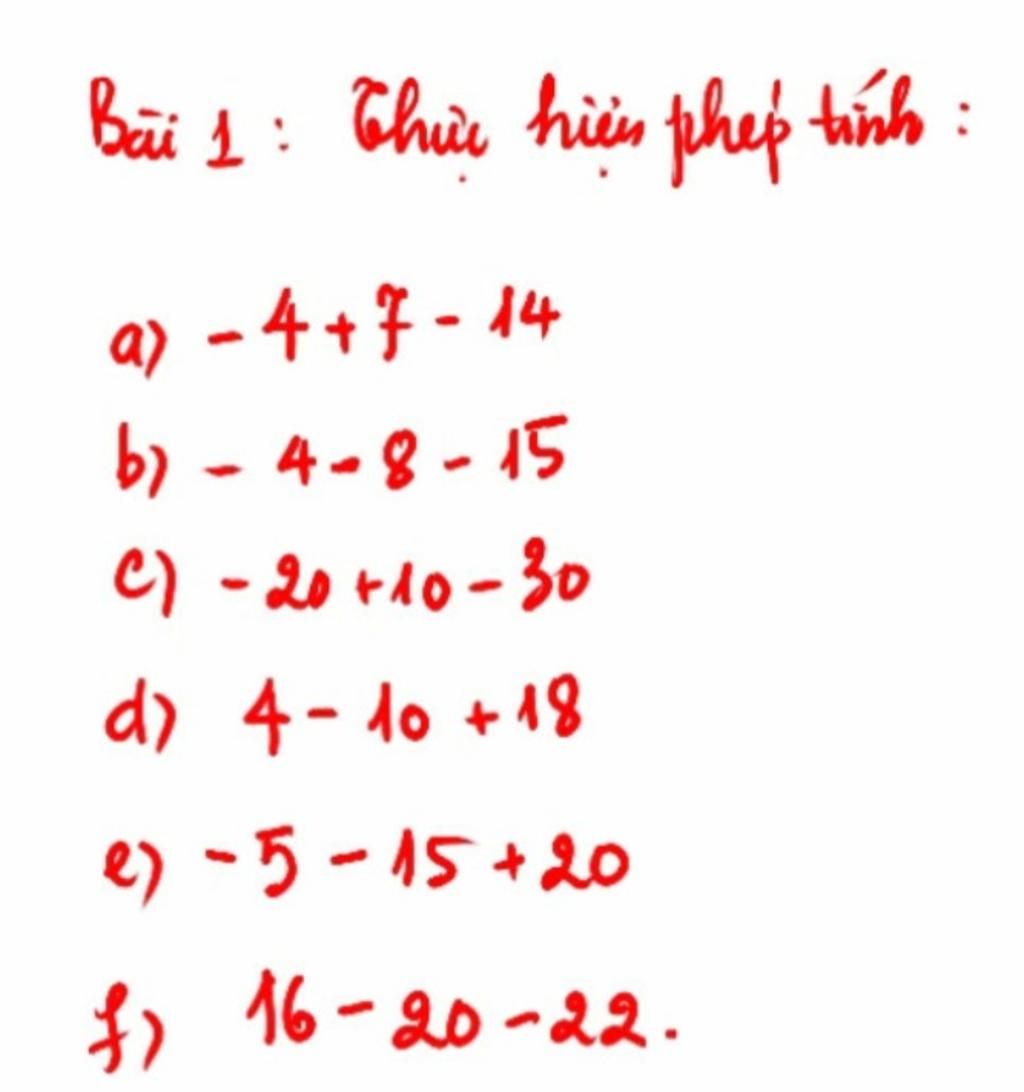 Bài 1 : Thực hiện phép tính :
a) - 4 + 7 - 14
b) - 4 - 8 - 15
c) - 20 + 10 - 30
d) 4 - 10 + 18
e) - 5 - 15 + 20
f) 16 - 20 - 22 .